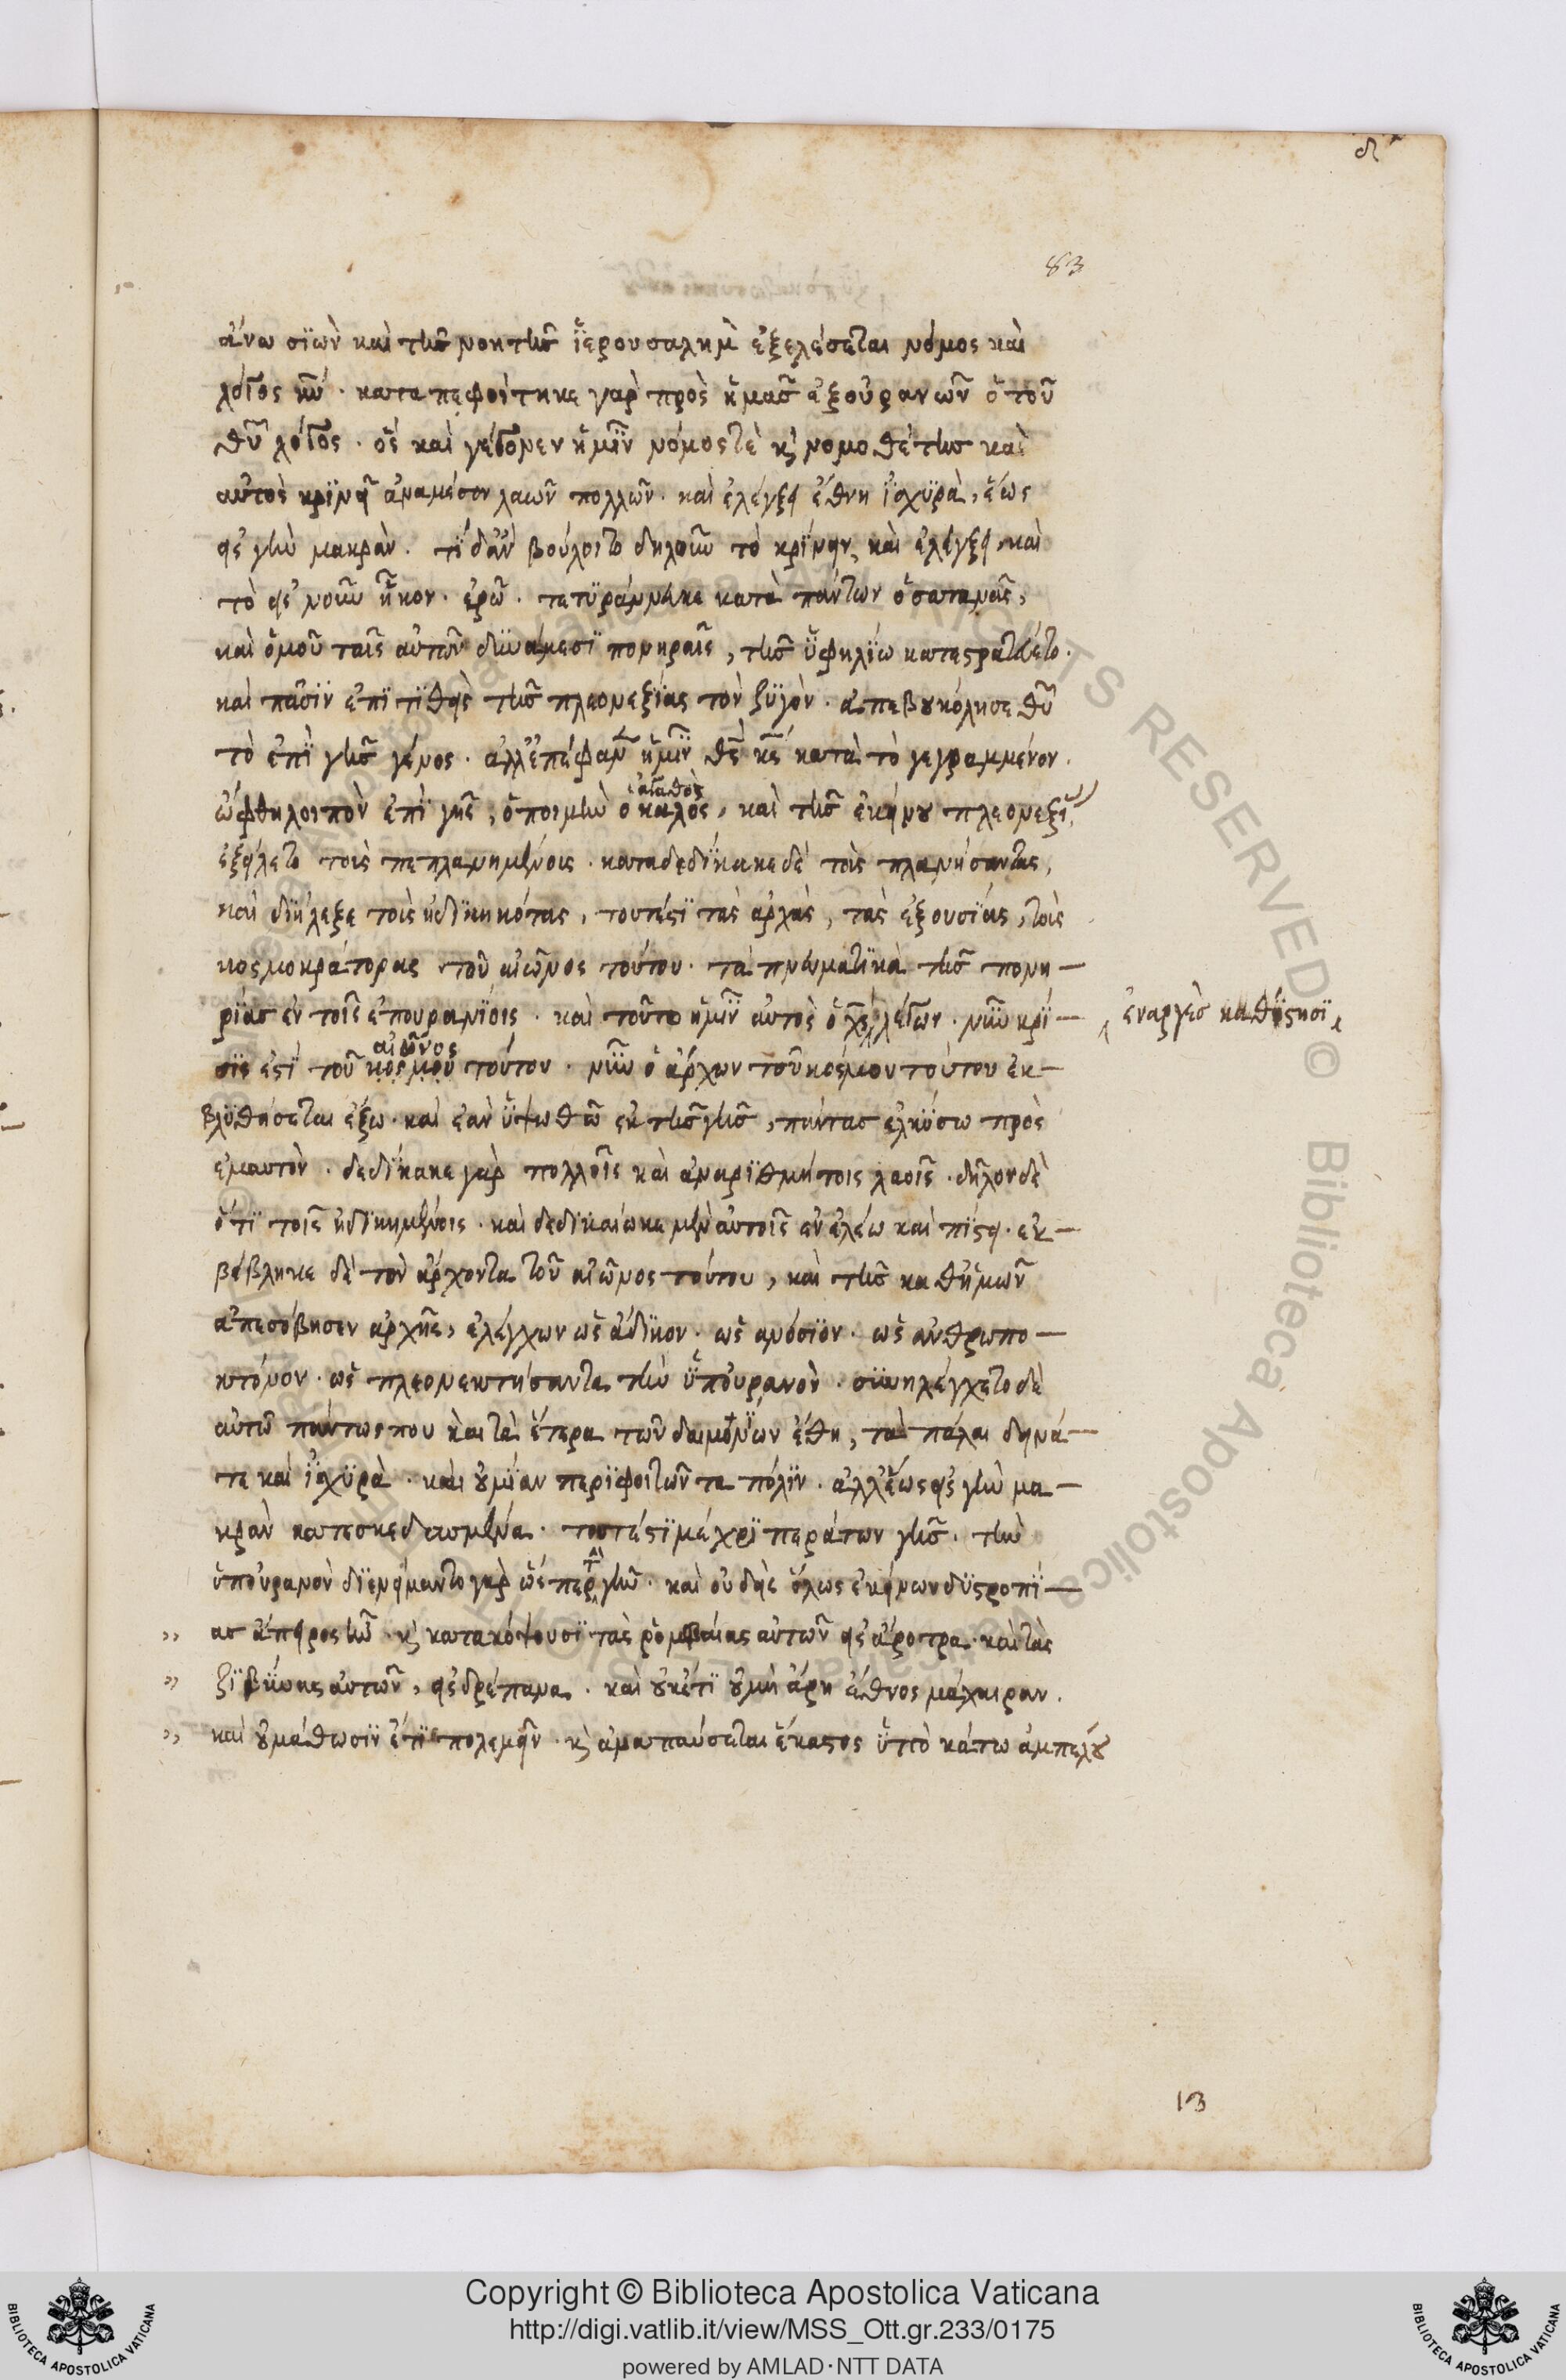 δ´
83
ἄνω σϊὼν καὶ τῆς νοητῆς ἱερουσαλὴμ ἐξελεύσεται νόμος καὶ
λόγος κυ̅ · καταπεφοίτηκε γὰρ πρὸς ἡμᾶς ἐξ οὐρανῶν ὁ τοῦ
θυ̅ λόγος · ὃς καὶ γέγονεν ἡμῖν νόμος τὲ κ̀ νομοθέτης καὶ
αὐτὸς κρϊνεῖ ἀναμέσον λαῶν πολλῶν · καὶ ἐλέγξει ἔθνη ἰσχϋρὰ, ἕως
εἰς γῆν μακρὰν · τί δ' ἂν βούλοιτο δηλοῦν τὸ κρίνειν, καὶ ἐλέγξει, καὶ
τὸ εἰς νοῦν ἧκον · ἐρῶ · τετϋράννηκε κατὰ πάντων ὁ σατανᾶς,
καὶ ὁμοῦ ταῖς αὐτῶν δυνάμεσϊ πονηραῖς, τῆς ὑφηλίω κατεστρατεύετο ·
καὶ πᾶσϊν ἐπϊτϊθεὶς τῆς πλεονεξίας τὸν ζϋγὸν · ἀπεβουκόλησε θυ̅
τὸ ἐπὶ γῆς γένος · ἀλλ' ἐπέφαν ἡμῖν θς̅ κς̅ κατὰ τὸ γεγραμμένον ·
ὤφθη λοιπὸν ἐπὶ γῆς, ὁ ποιμὴν ὁ καλὸς, καὶ τῆς ἐκείνου πλεονεξί
ἀγαθὸς
ἐξείλετο τοὺς πεπλανημένοις · καταδεδίκακε δὲ τοὺς πλανήσαντας,
καὶ διήλεξε τοὺς ἠδϊκηκότας, τουτέστϊ τὰς ἀρχὰς, τὰς ἐξουσίας, τοὺς
κοσμοκράτορας τοῦ αἰῶνος τούτου · τὰ πνευματϊκὰ τῆς πονη –
ρίας ἐν τοῖς ἐπουρανίοις · καὶ τοῦτο ἡμῖν αὐτὸς ὁ χς̅ λέγων · νῦν κρί –
ἐναργὲς καθίστησϊ
σϊς ἐστὶ τοῦ κόσμου τούτου · νῦν ὁ ἄρχων τοῦ κόσμου τούτου ἐκ –
αἰῶνος
βλϋθήσεται ἔξω · καὶ ἐὰν ὑψωθῶ ἐκ τῆς γῆς, πάντας ἑλκύσω πρὸς
ἐμαυτὸν · δεδίκακε γὰρ πολλοῖς καὶ ἀναρϊθμήτοις λαοῖς · δῆλον δὲ
ὅτϊ τοῖς ἠδϊκημένοις · καὶ δεδϊκαίωκε μὲν αὐτοῖς ἐν ἐλέω καὶ πίστει · ἐκ –
βέβληκε δὲ τὸν ἄρχοντα τοῦ αἰῶνος τούτου, καὶ τῆς καθ' ἡμῶν
ἀπεσόβησεν ἀρχῆς, ἐλέγχων ὡς ἄδϊκον · ὡς ἀνόσϊον · ὡς ἀνθρωπο –
κτόνον · ὡς πλεονεκτήσαντα τὴν ὑπ' οὐρανὸν · σϋνηλέγχετο δὲ
αὐτῶ πάντως που καὶ τὰ ἕτερα τῶν δαιμονίων ἔθη, τὰ πάλαι δηνά –
τε καὶ ἰσχϋρὰ · καὶ οὐ μίαν περϊφοιτῶντα πόλϊν · ἀλλ' ἕως εἰς γῆν μα –
κρὰν κατεσκεδασμένα · τουτέστϊ μέχρϊ περάτων γῆς · τὴν
ὑπ' οὐρανὸν δϊενείμαντο γὰρ ὥσπερ τ γῆν · καὶ οὐδεὶς ὅλως ἐκείνων δϋστροπί –
ας ἄπειρος ἦν · κ̀ κατακόψουσϊ τὰς ῥομφαίας αὐτῶν εἰς ἄροτρα · καὶ τὰς
ζϊβύνας αὐτῶν, εἰς δρέπανα · καὶ οὐκέτϊ οὐ μὴ ἄρη ἔθνος μάχαιραν ·
καὶ οὐ μάθωσϊν ἔτϊ πολεμεῖν · κ̀ ἀναπαύσεται ἕκαστος ὑπὸ κάτω ἀμπέλου
13
Copyright © Biblioteca Apostolica Vaticana
http://digi.vatlib.it/view/MSS_Ott.gr.233/0175
powered by AMLAD·NTT DATA